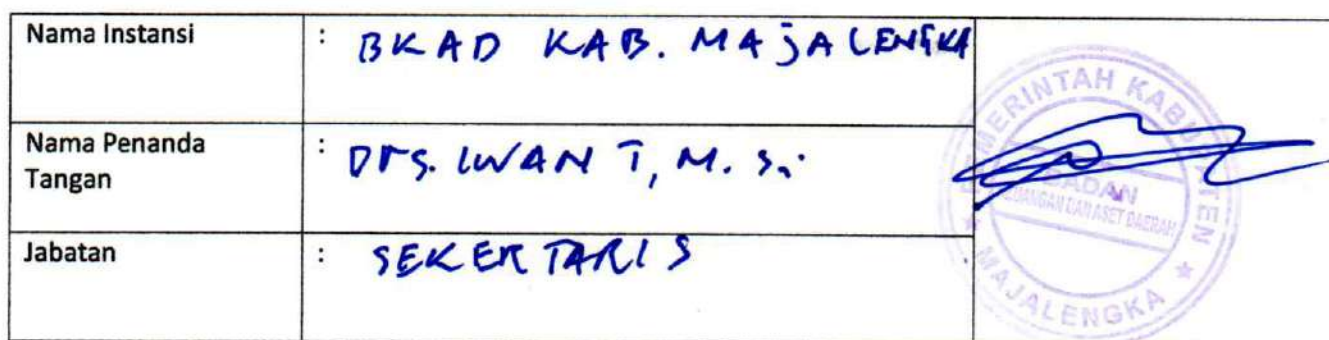 Nama Instansi : BKAD KAB. MAJALENGKA
Nama Penanda
Tangan : Drs. IWAN T, M. Si
Jabatan : SEKERTARIS
PEMERINTAH KABUPATEN
BADAN
KEUANGAN DAN ASET DAERAH
★ MAJALENGKA ★